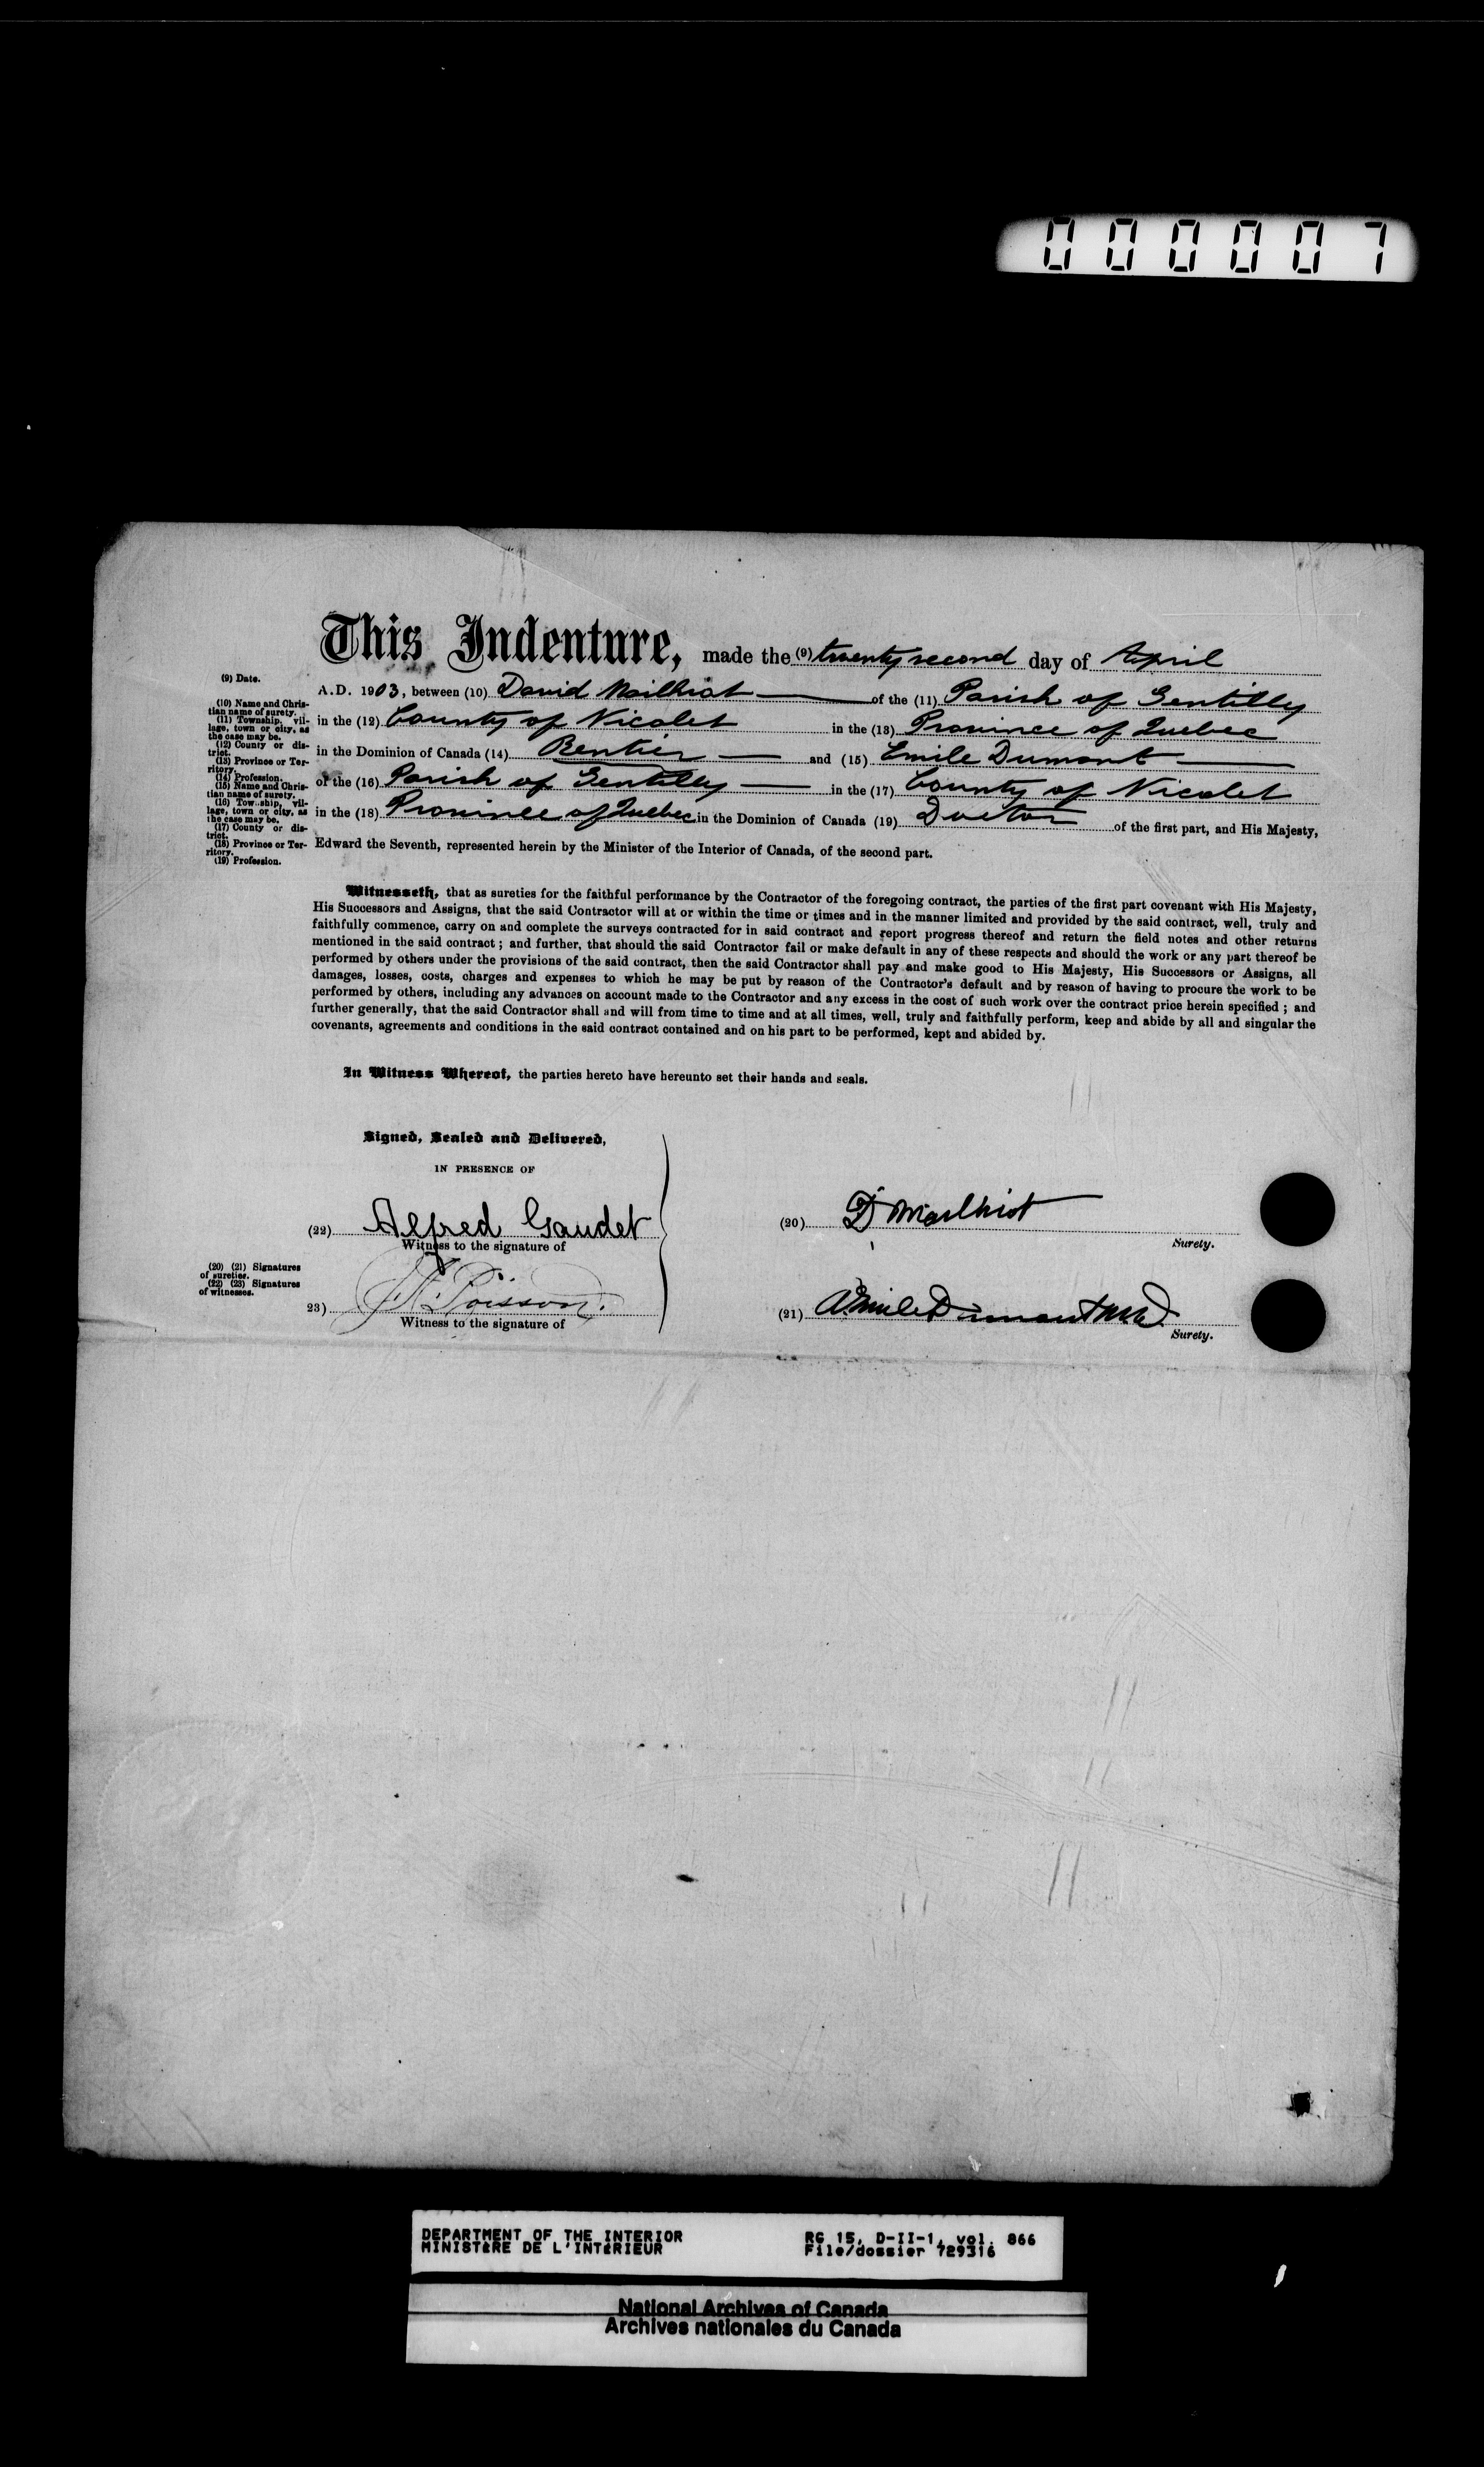 000007
This Indenture, made the (9) twenty second day of April
A.D. 1903, between (10) David Mailhiot of the (11) Parish of Gentilly
in the (12) County of Nicolet in the (13) Province of Quebec
in the Dominion of Canada (14) Rentier and (15) Emile Dumont
of the (16) Parish of Gentilly in the (17) County of Nicolet
in the (18) Province of Quebec in the Dominion of Canada (19) Doctor of the first part, and His Majesty,
Edward the Seventh, represented herein by the Minister of the Interior of Canada, of the second part.
(9) Date.
(10) Name and Chris-
tian name of surety.
(11) Township, vil-
lage, town or city, as
the case may be.
(12) County or dis-
trict.
(13) Province or Ter-
ritory.
(14) Profession.
(15) Name and Chris-
tian name of surety.
(16) Township, vil-
lage, town or city, as
the case may be.
(17) County or dis-
trict.
(18) Province or Ter-
ritory.
(19) Profession.
Witnesseth, that as sureties for the faithful performance by the Contractor of the foregoing contract, the parties of the first part covenant with His Majesty,
His Successors and Assigns, that the said Contractor will at or within the time or times and in the manner limited and provided by the said contract, well, truly and
faithfully commence, carry on and complete the surveys contracted for in said contract and report progress thereof and return the field notes and other returns
mentioned in the said contract; and further, that should the said Contractor fail or make default in any of these respects and should the work or any part thereof be
performed by others under the provisions of the said contract, then the said Contractor shall pay and make good to His Majesty, His Successors or Assigns, all
damages, losses, costs, charges and expenses to which he may be put by reason of the Contractor's default and by reason of having to procure the work to be
performed by others, including any advances on account made to the Contractor and any excess in the cost of such work over the contract price herein specified; and
further generally, that the said Contractor shall and will from time to time and at all times, well, truly and faithfully perform, keep and abide by all and singular the
covenants, agreements and conditions in the said contract contained and on his part to be performed, kept and abided by.
In Witness Whereof, the parties hereto have hereunto set their hands and seals.
Signed, Sealed and Delivered,
IN PRESENCE OF
(22) Alfred Gaudet
Witness to the signature of
(20) D Mailhiot
Surety.
(20) (21) Signatures
of sureties.
(22) (23) Signatures
of witnesses.
23) Poisson.
Witness to the signature of
(21) Emile Dumont MD
Surety.
DEPARTMENT OF THE INTERIOR RG 15, D-II-1, vol. 866
MINISTÈRE DE L'INTÉRIEUR File/dossier 729316
National Archives of Canada
Archives nationales du Canada